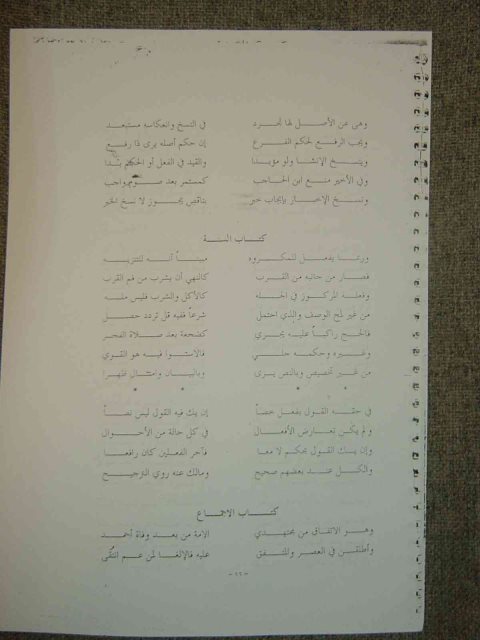 وهى عن الأصل لها تجرد في النسخ وانعكاسه مستبعد
ويجب الرفع لحكم الفرع إن حكم أصله يرى ذا رفع
وينسخ الإنشا ولو مؤبدا والقيد في الفعل أو الحكم بدا
وفي الأخير منع ابن الحاجب كمستمر بعد صوم واجب
ونسخ الإخبار بإيجاب خبر بناقض يجوز لا نسخ الخبر
كتاب السنة
وربما يفعل للمكروه مبيناً أنه للتنزيه
فصار من جانبه من القرب كالنهي أن يشرب من فم القرب
وفعله المركوز في الجبله كالأكل والشرب فليس مله
من غير لمح الوصف والذي احتمل شرعاً ففيه قل تردد حصل
فالحج راكباً عليه يجري كضجعة بعد صلاة الفجر
وغيره وحكمه جلي فالاستوا فيه هو القوي
من غير تخصيص وبالنص يرى وبالبيان وامتثال ظهرا
* * *
في حقه القول بفعل خصا إن يك فيه القول ليس نصا
ولم يكن تعارض الأفعال في كل حالة من الأحوال
وإن يك القول بحكم لامعا فآخر الفعلين كان رافعا
والكل عند بعضهم صحيح ومالك عنه روي الترجيح
كتاب الاجماع
وهو الاتفاق من مجتهدي الامة من بعد وفاة أحمد
وأطلقن في العصر والمتفق عليه فالإلغا لمن عم انتقي
- ٢٢ -